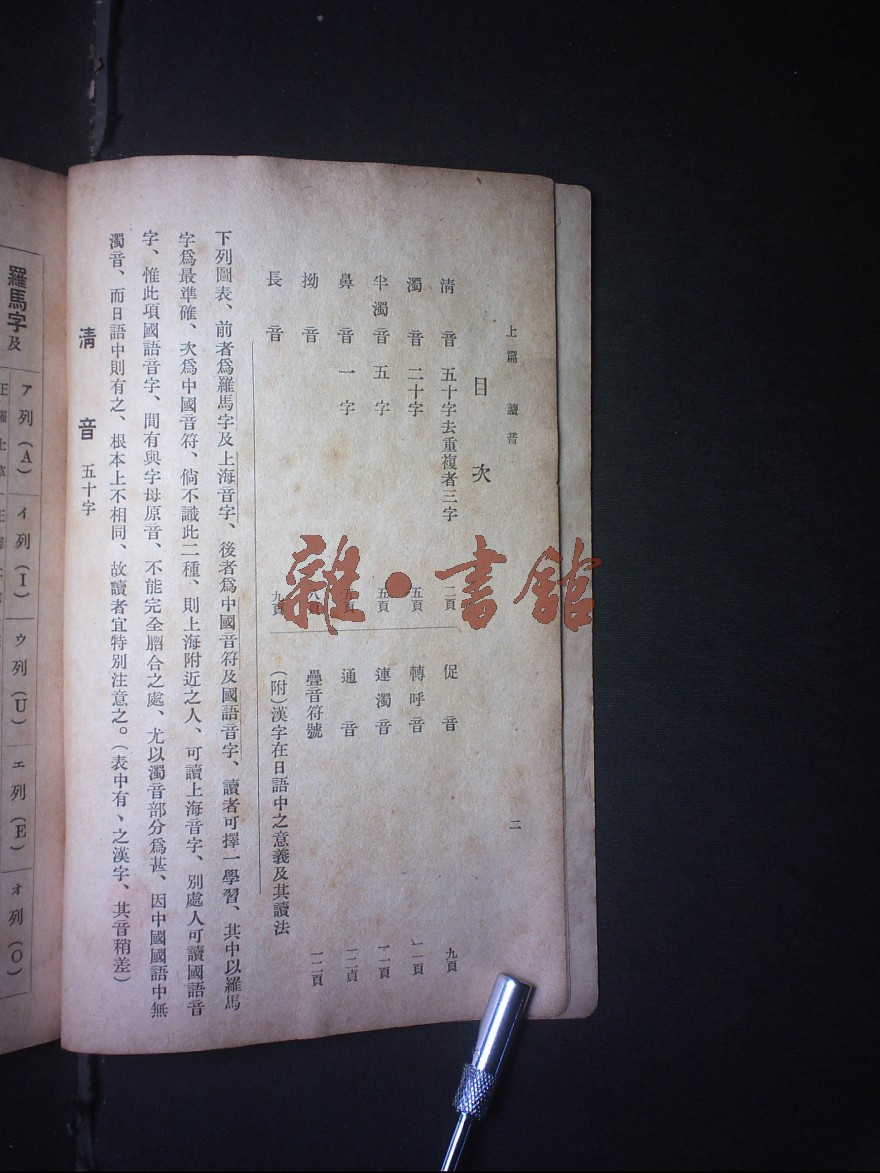 上篇　讀音
二
目次
清音　五十字去重複者三字　二頁
濁音　二十字　五頁
半濁音　五字　五頁
鼻音　一字　五頁
拗音　八頁
長音　九頁
促音　九頁
轉呼音　一一頁
連濁音　一一頁
通音　一二頁
疊音符號　一二頁
(附)漢字在日語中之意義及其讀法
下列圖表、前者爲羅馬字及上海音字、後者爲中國音符及國語音字、讀者可擇一學習、其中以羅馬
字爲最準確、次爲中國音符、倘不識此二種、則上海附近之人、可讀上海音字、別處人可讀國語音
字、惟此項國語音字、間有與字母原音、不能完全脗合之處、尤以濁音部分爲甚、因中國國語中無
濁音、而日語中則有之、根本上不相同、故讀者宜特別注意之。(表中有、之漢字、其音稍差)
清音　五十字
羅馬字及
ア列(A)
イ列(I)
ウ列(U)
エ列(E)
オ列(O)
雜·書館